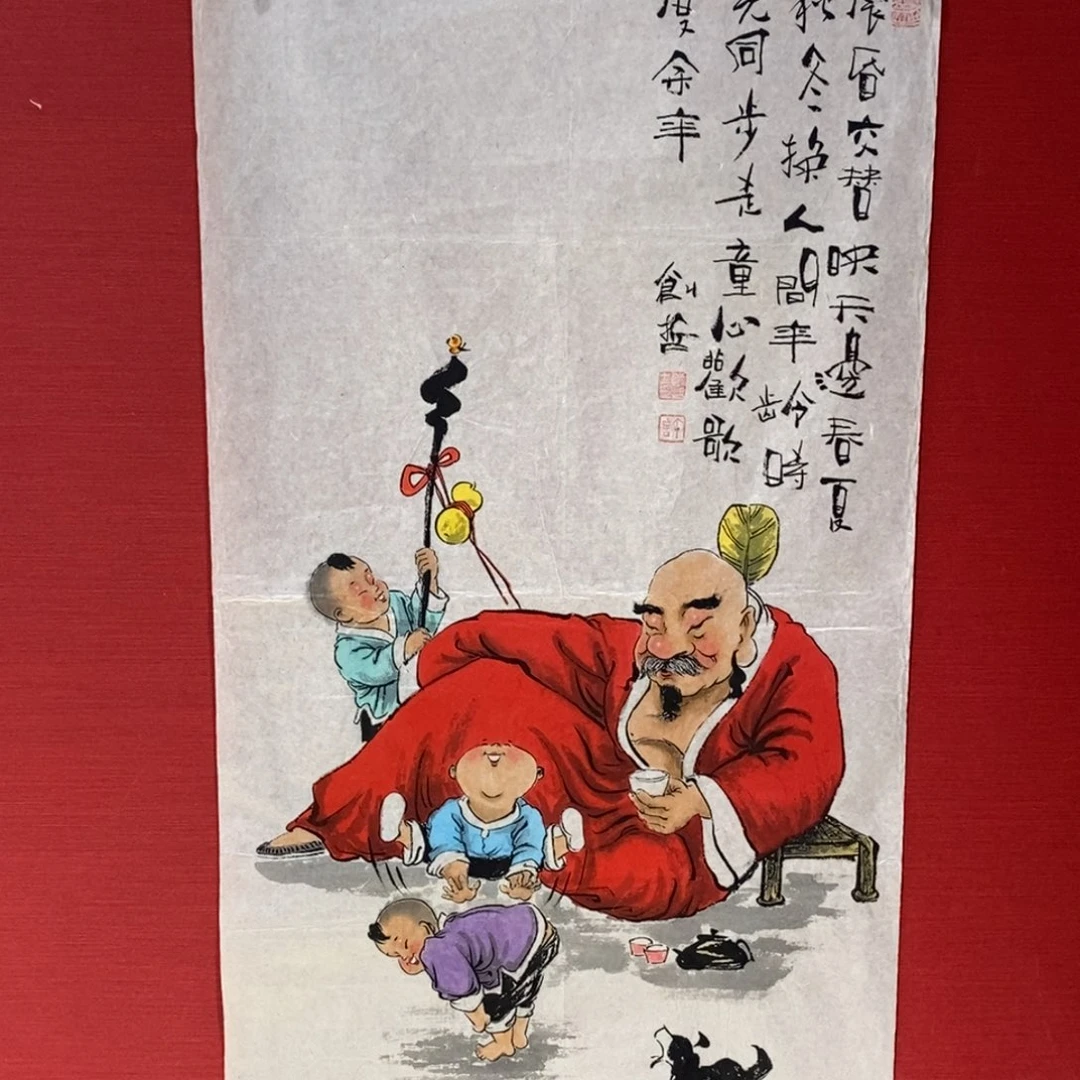 晨昏交替映天邊春夏
秋冬換人間年齡時
光同步走童心歡歌
度余年
創哲